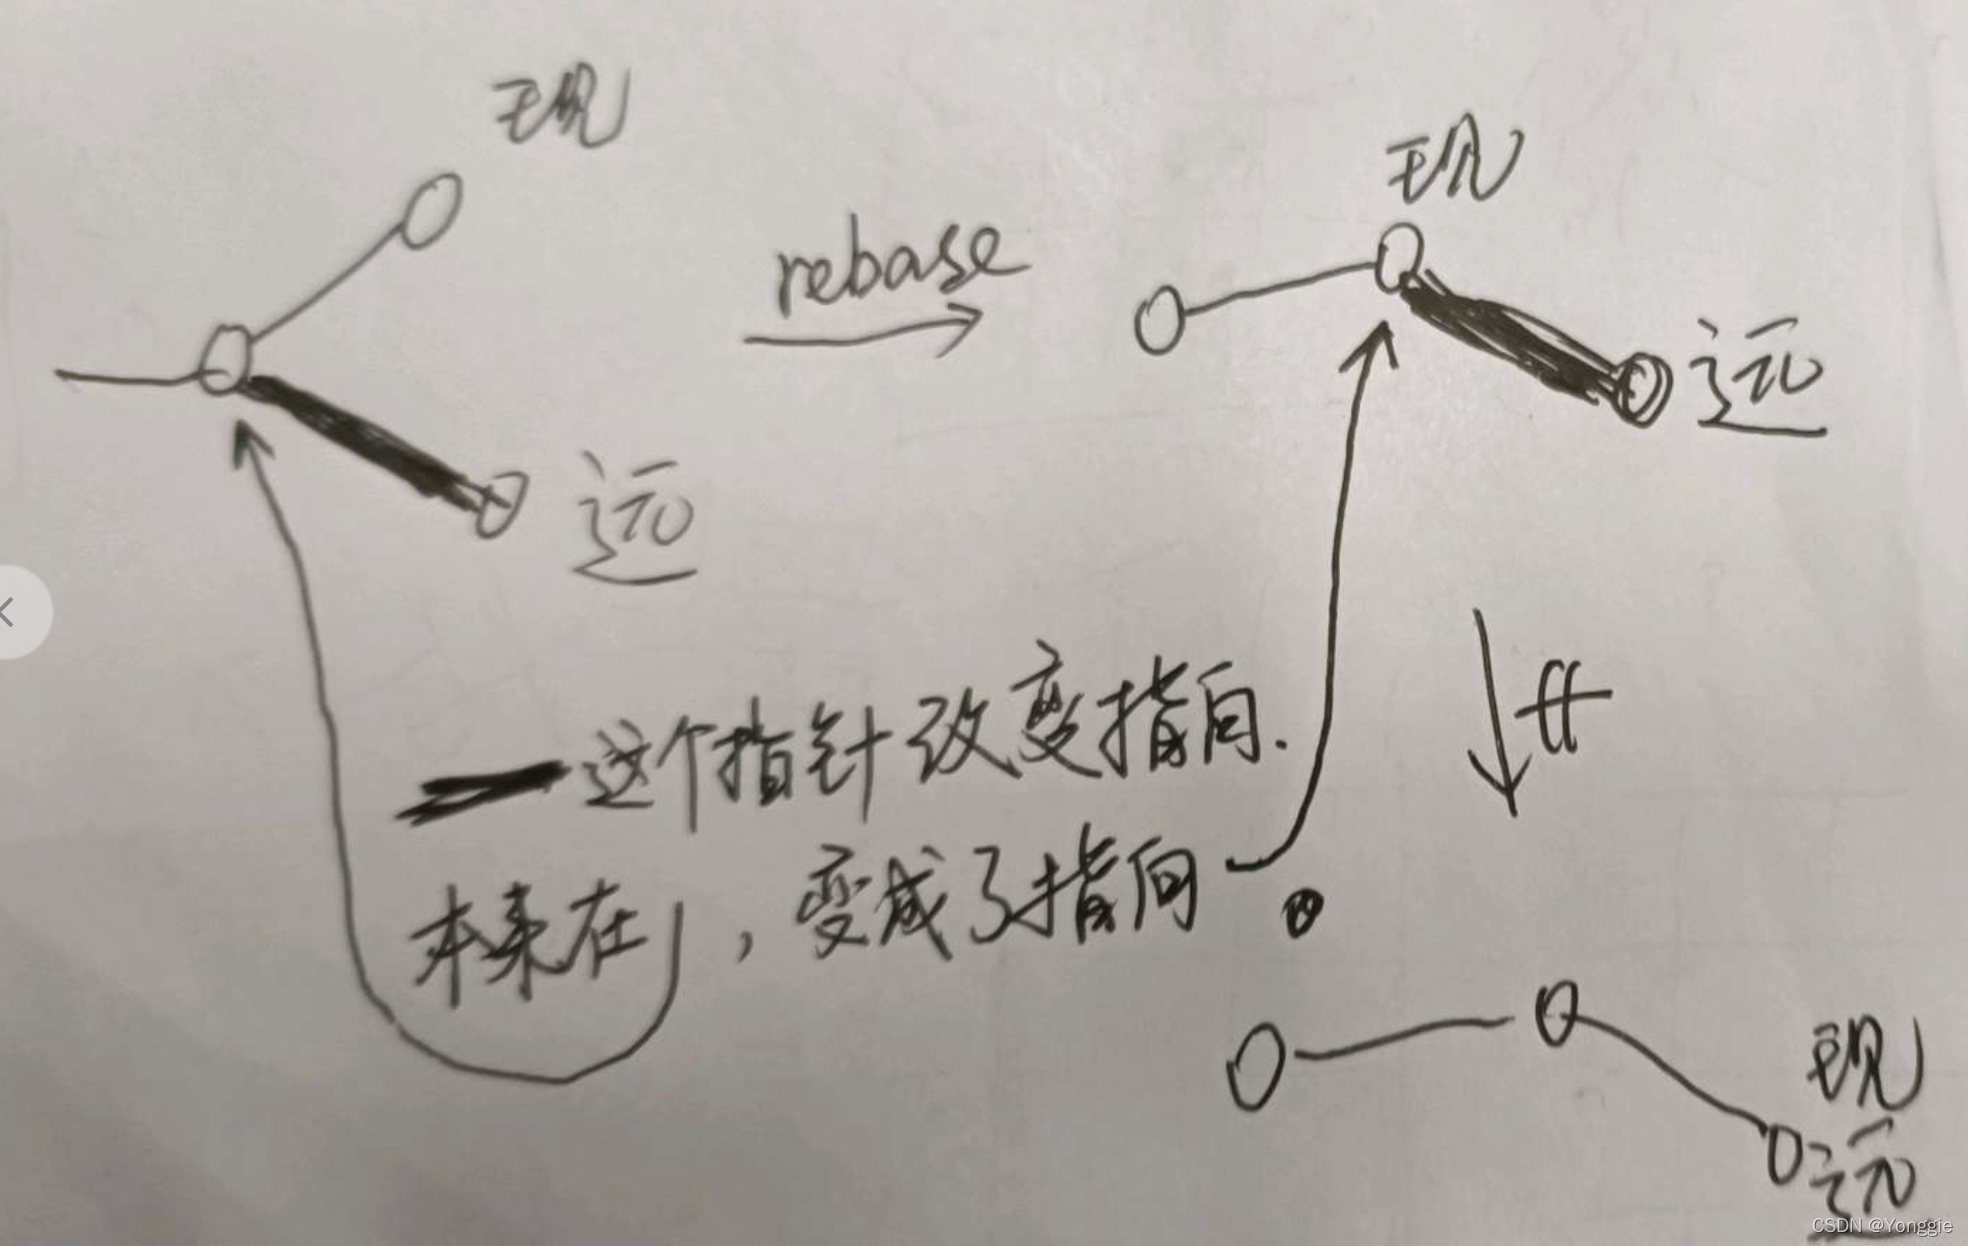 现
现
rebase
远
远
ff
这个指针改变指向.
本来在，变成了指向
现
远
CSDN @Yonggie